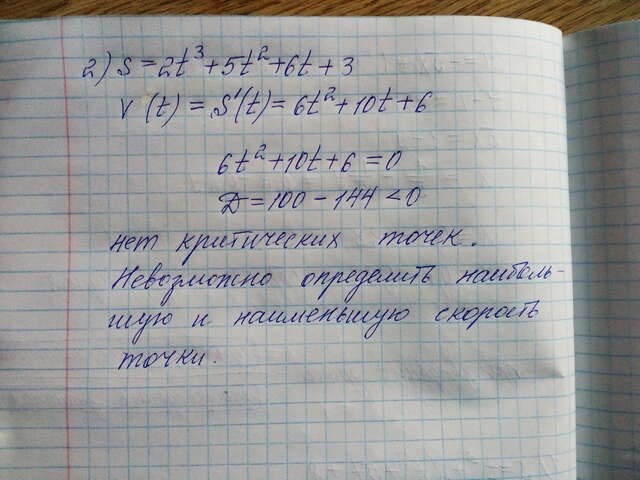 2) S = 2t³ + 5t² + 6t + 3
V (t) = S'(t) = 6t² + 10t + 6
6t² + 10t + 6 = 0
D = 100 - 144 < 0
нет критических точек.
Невозможно определить наиболь-
шую и наименьшую скорость
точки.